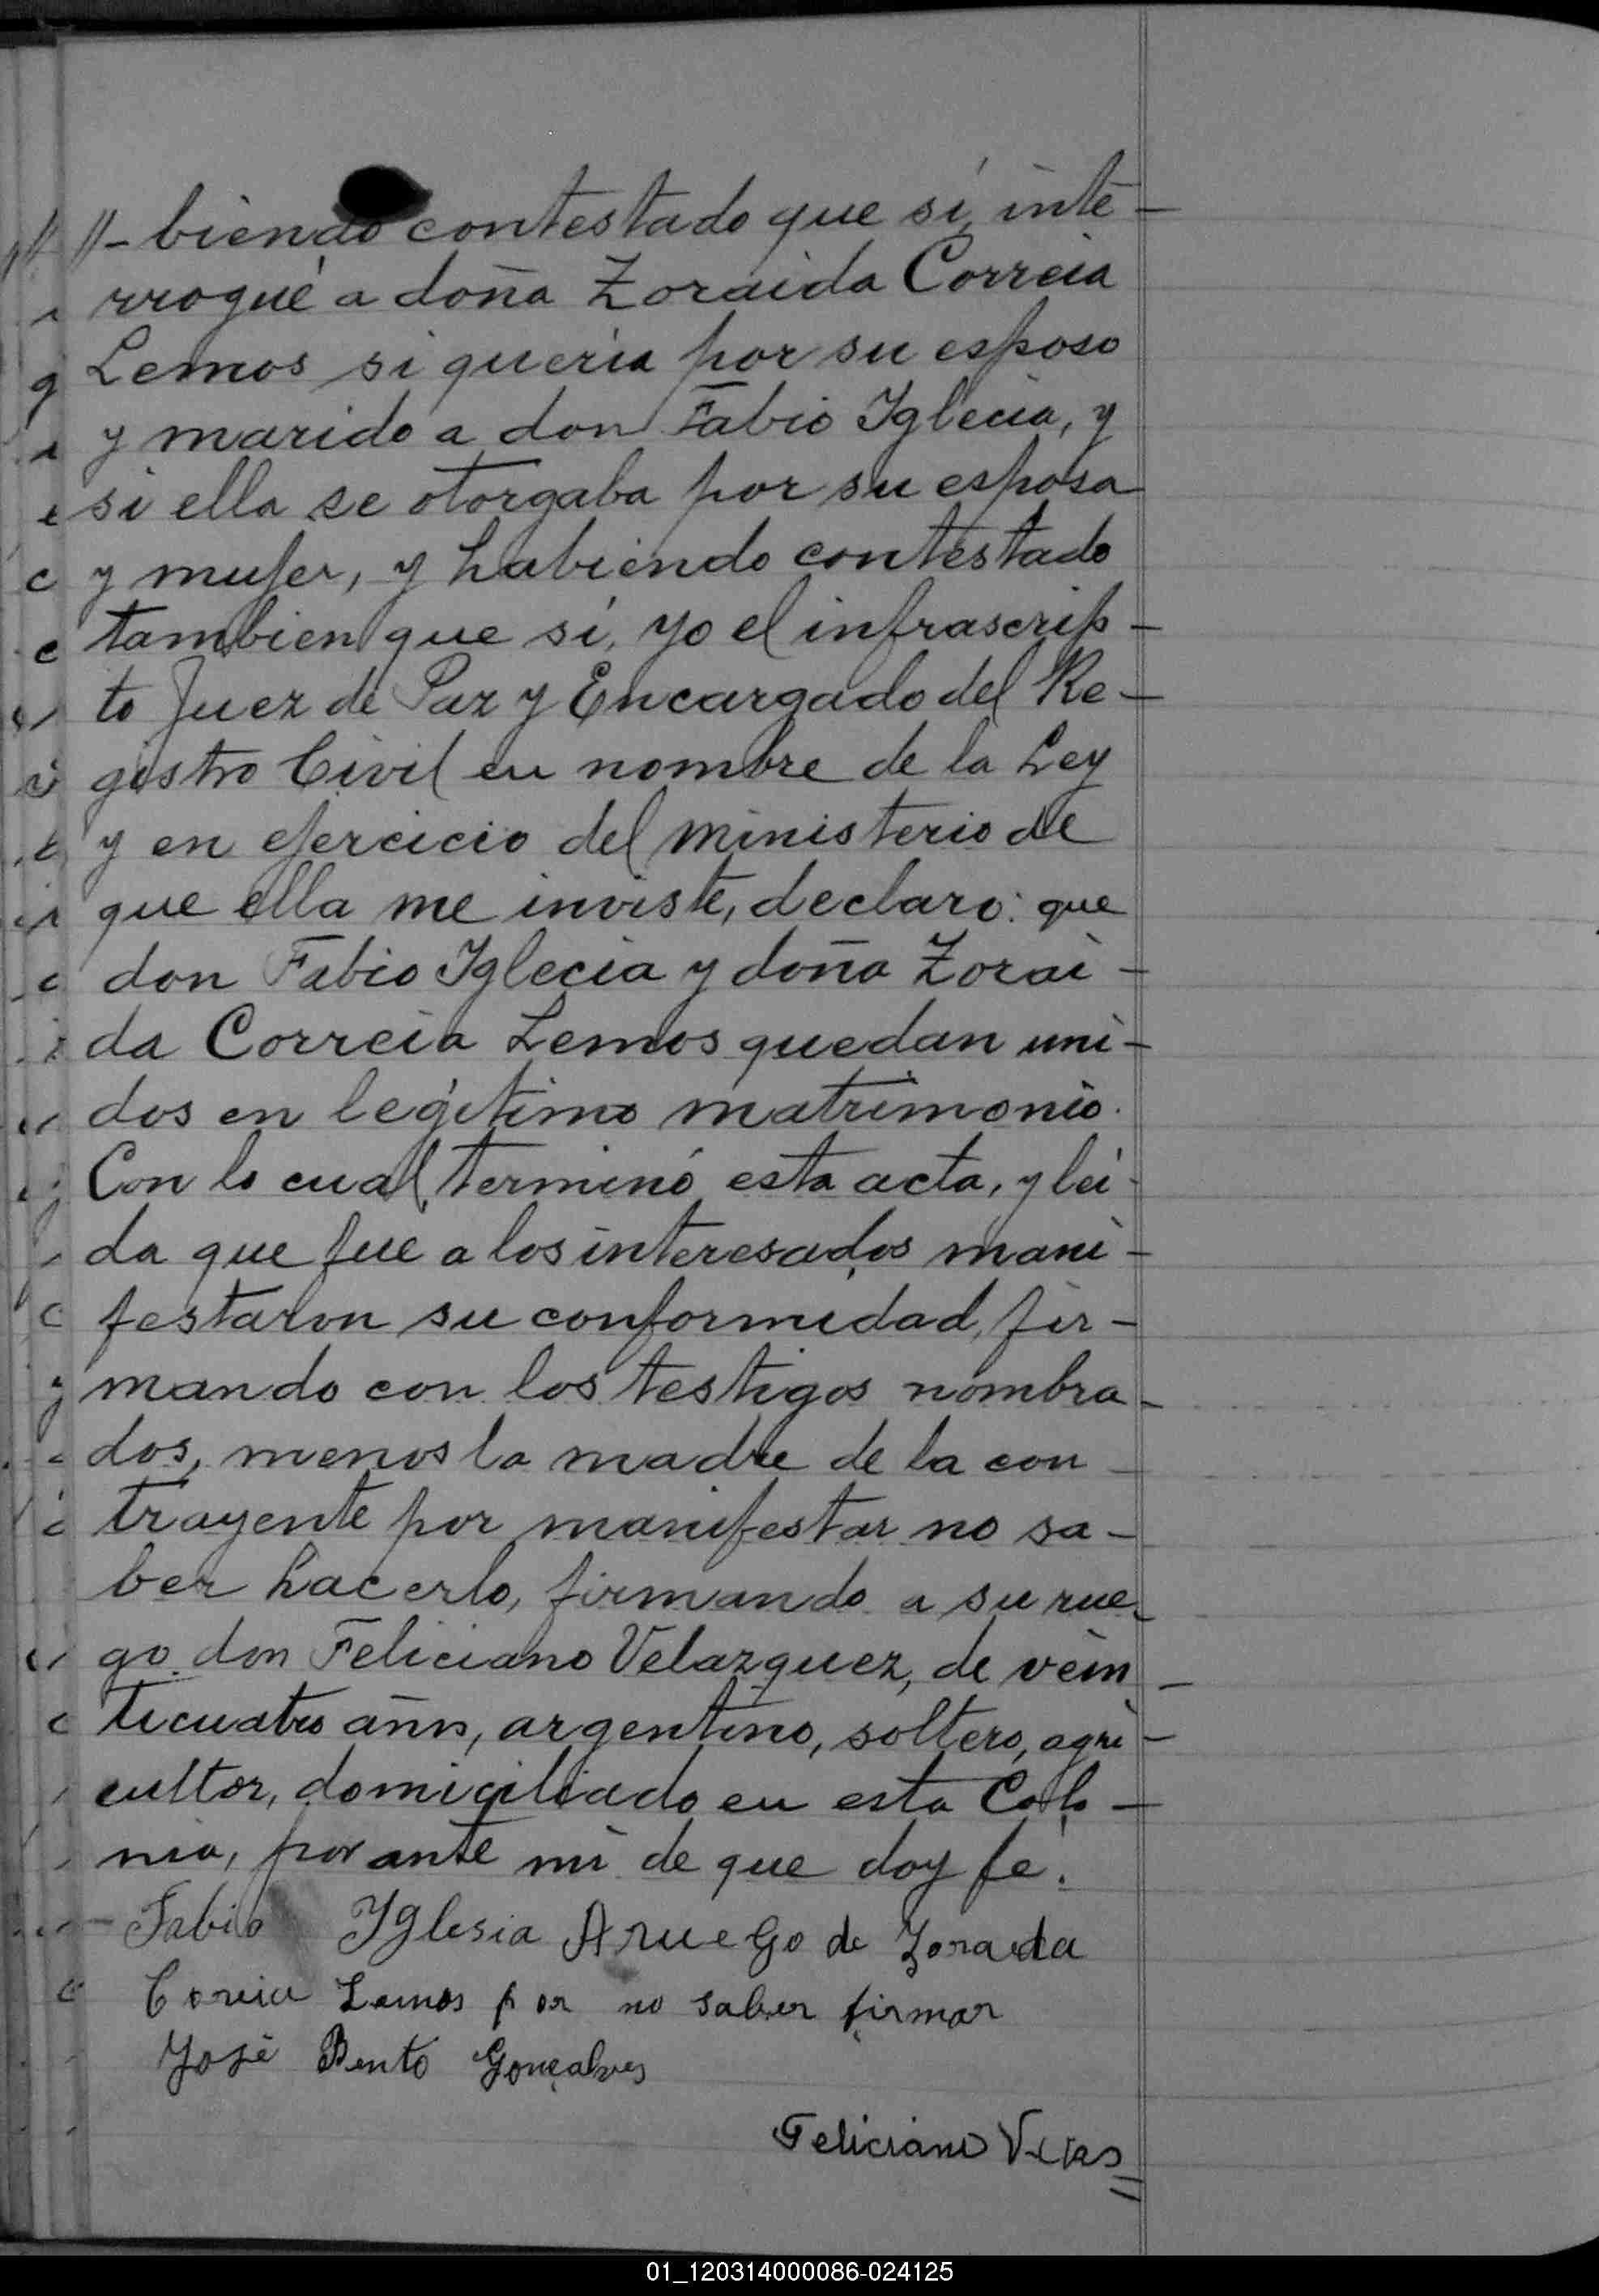 //-biendo contestado que sí, inte-
rrogué a doña Zoraida Correia
Lemos si queria por su esposo
y marido a don Fabio Iglecia, y
si ella se otorgaba por su esposa
y mujer, y habiendo contestado
tambien que sí, yo el infrascrip-
to Juez de Paz y Encargado del Re-
gistro Civil en nombre de la Ley
y en ejercicio del ministerio de
que ella me inviste, declaro: que
don Fabio Iglecia y doña Zorai-
da Correia Lemos quedan uni-
dos en legítimo matrimonio.
Con lo cual terminó esta acta, y lei-
da que fue a los interesados mani-
festaron su conformidad, fir-
mando con los testigos nombra-
dos, menos la madre de la con-
trayente por manifestar no sa-
ber hacerlo, firmando a su rue-
go don Feliciano Velazquez, de vein-
ticuatro años, argentino, soltero, agri-
cultor, domiciliado en esta Colo-
nia, por ante mi de que doy fé.
Fabio Yglesia Aruego de Zoraida
Correia Lemos por no saber firmar
José Bento Gonçalves
Feliciano
01_120314000086-024125